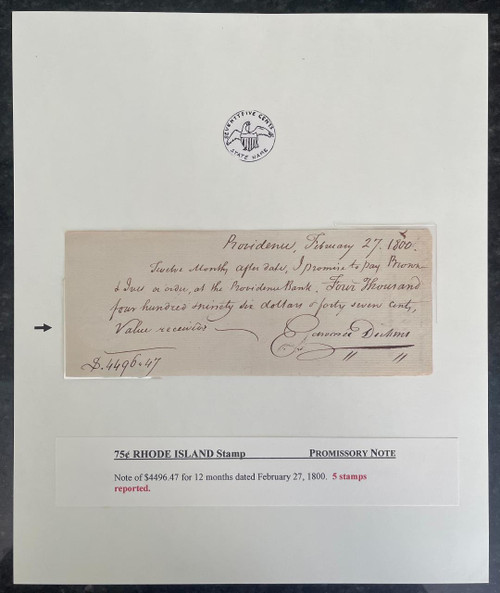 SEVENTY FIVE CENTS
STATE NAME
Providence, February 27. 1800.
Twelve Months after date, I promise to pay Brown
& Ives or order, at the Providence Bank, Four Thousand
four hundred ninety six dollars & forty seven cents,
Value received
D. 4496.47
75¢ RHODE ISLAND Stamp PROMISSORY NOTE
Note of $4496.47 for 12 months dated February 27, 1800. 5 stamps
reported.